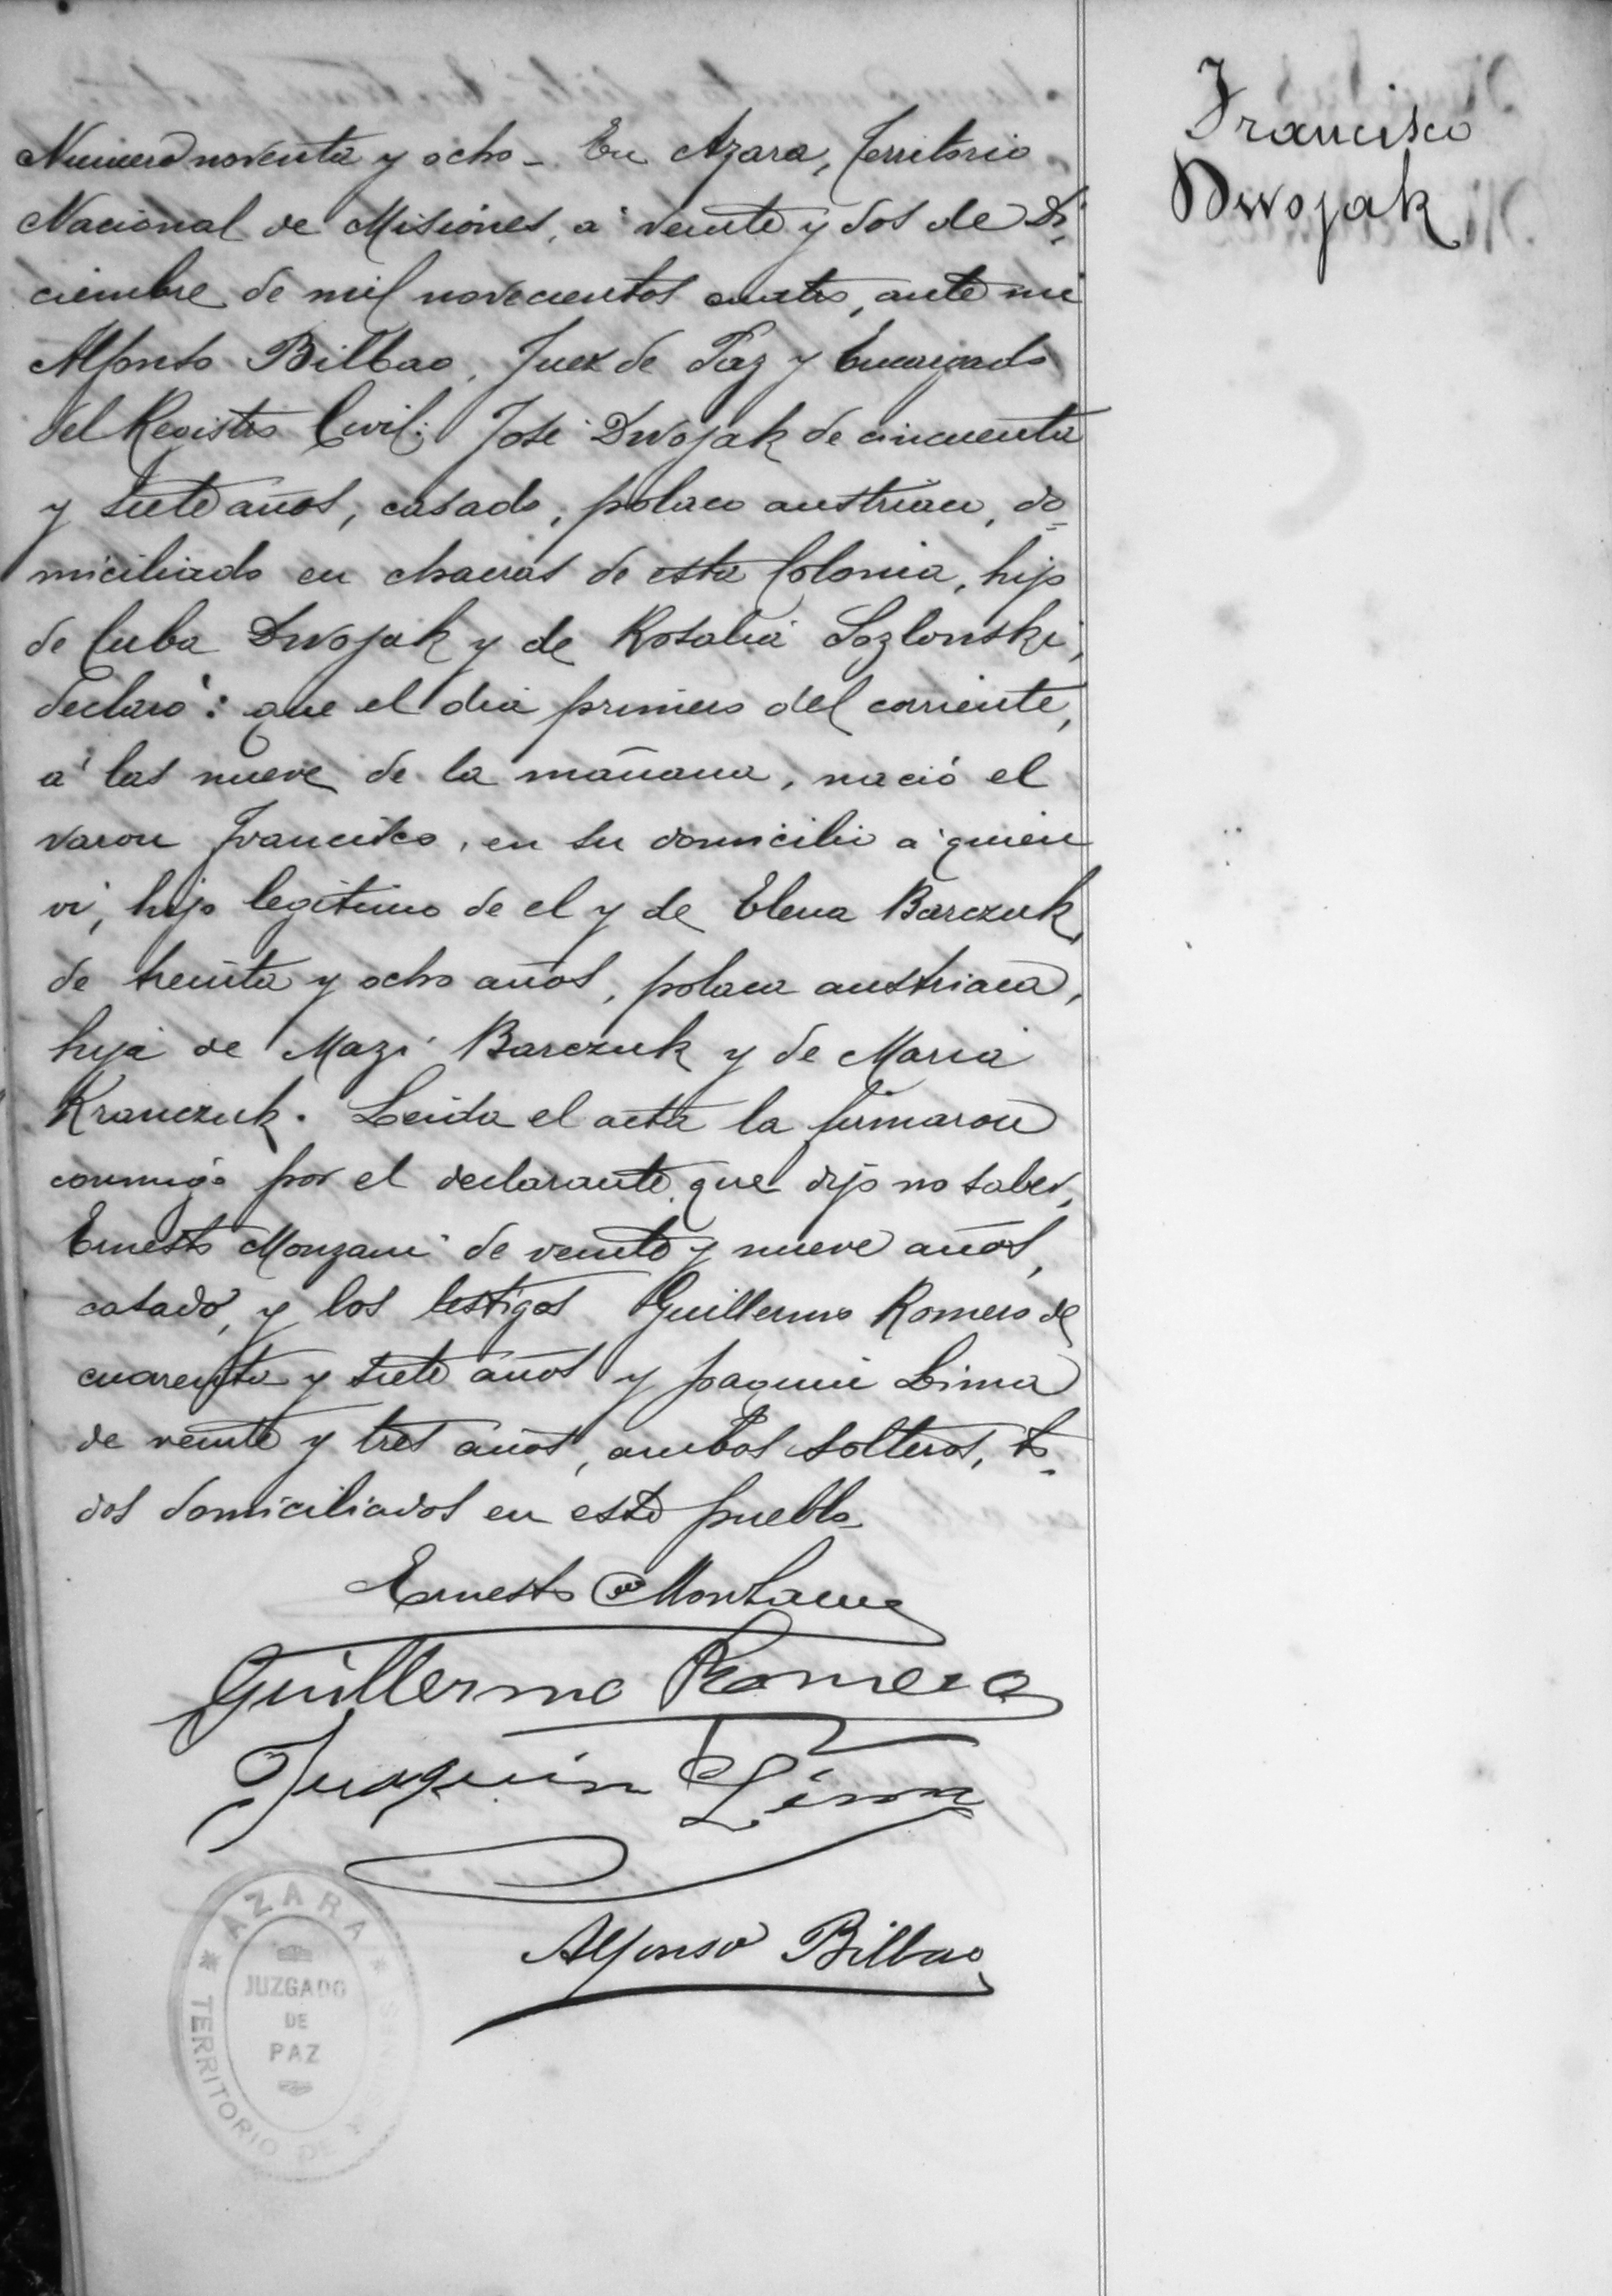 Francisco
Dwojak
Numero noventa y ocho - En Azara, Territorio
Nacional de Misiones, a veinte y dos de Di-
ciembre de mil novecientos cuatro, ante mi
Alfonso Bilbao, Juez de Paz y Encargado
del Registro Civil: José Dwojak de cincuenta
y siete años, casado, polaco austriaco, do-
miciliado en chacras de esta Colonia, hijo
de Cuba Dwojak y de Rosalia Sozlonski,
declaró: que el dia primero del corriente,
a las nueve de la mañana, nació el
varon Francisco, en su domicilio a quien
vi, hijo legitimo de el y de Elena Barczuk,
de treinta y ocho años, polaca austriaca,
hija de Mazi Barczuk y de Maria
Kranczuk. Leida el acta la firmaron
conmigo por el declarante que dijo no saber,
Ernesto Monzani de veinte y nueve años,
casado, y los testigos Guillermo Romero de
cuarenta y siete años y Joaquin Lima
de veinte y tres años, ambos solteros, to-
dos domiciliados en este pueblo-
Ernesto Monzani
Guillermo Romero
Juaquin Lima
Alfonso Bilbao
AZARA
JUZGADO
DE
PAZ
TERRITORIO DE